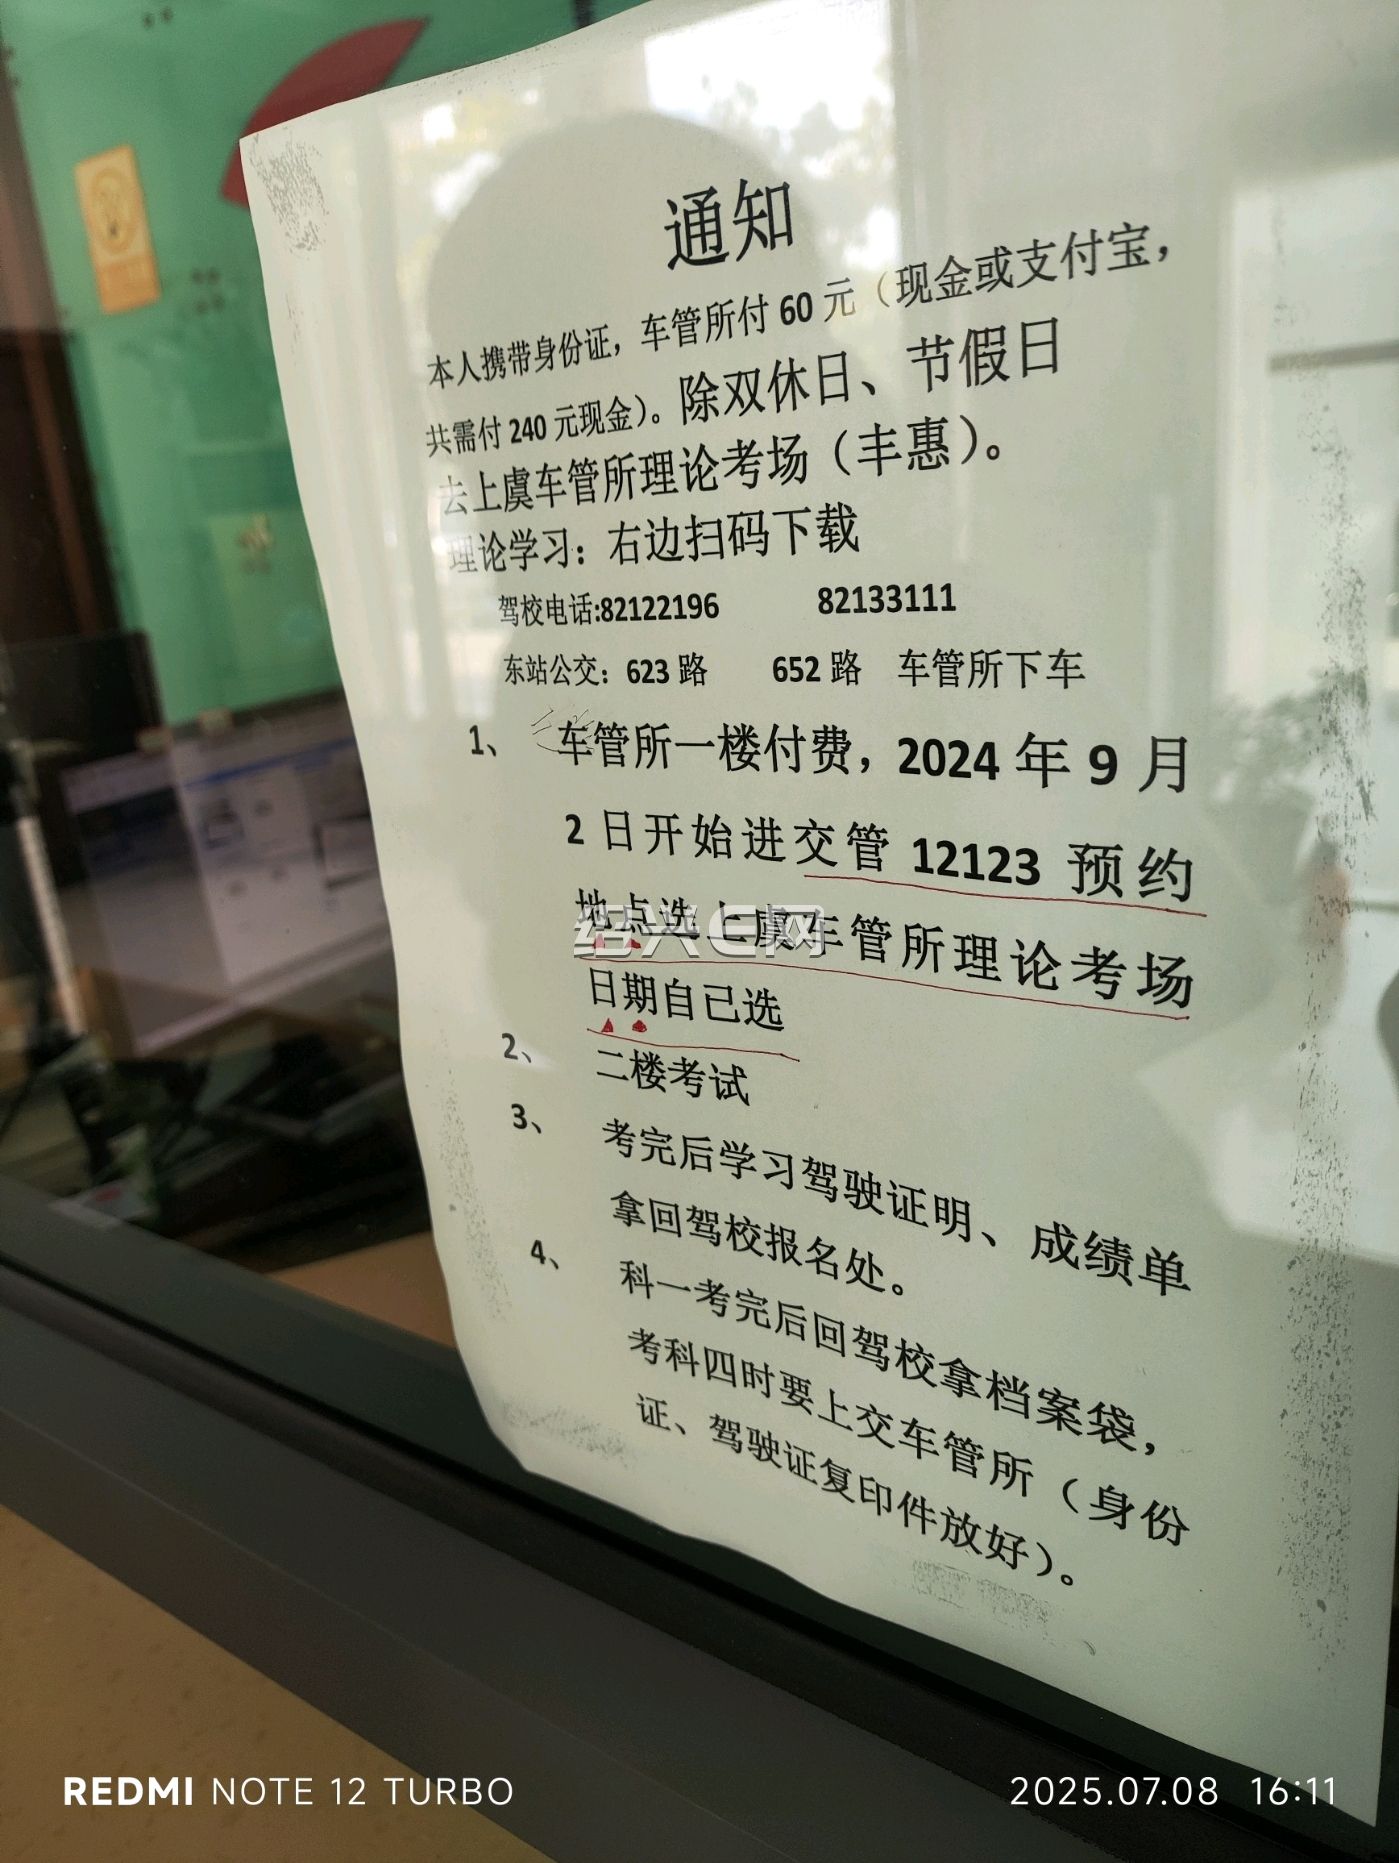 通知
本人携带身份证，车管所付 60 元（现金或支付宝，
共需付 240 元现金）。除双休日、节假日
去上虞车管所理论考场（丰惠）。
理论学习：右边扫码下载
驾校电话:82122196 82133111
东站公交：623 路 652 路 车管所下车
1、 车管所一楼付费，2024 年 9 月
2 日开始进交管 12123 预约
地点选上虞车管所理论考场
绍兴E网
日期自己选
2、 二楼考试
3、 考完后学习驾驶证明、成绩单
拿回驾校报名处。
4、 科一考完后回驾校拿档案袋，
考科四时要上交车管所（身份
证、驾驶证复印件放好）。
REDMI NOTE 12 TURBO 2025.07.08 16:11